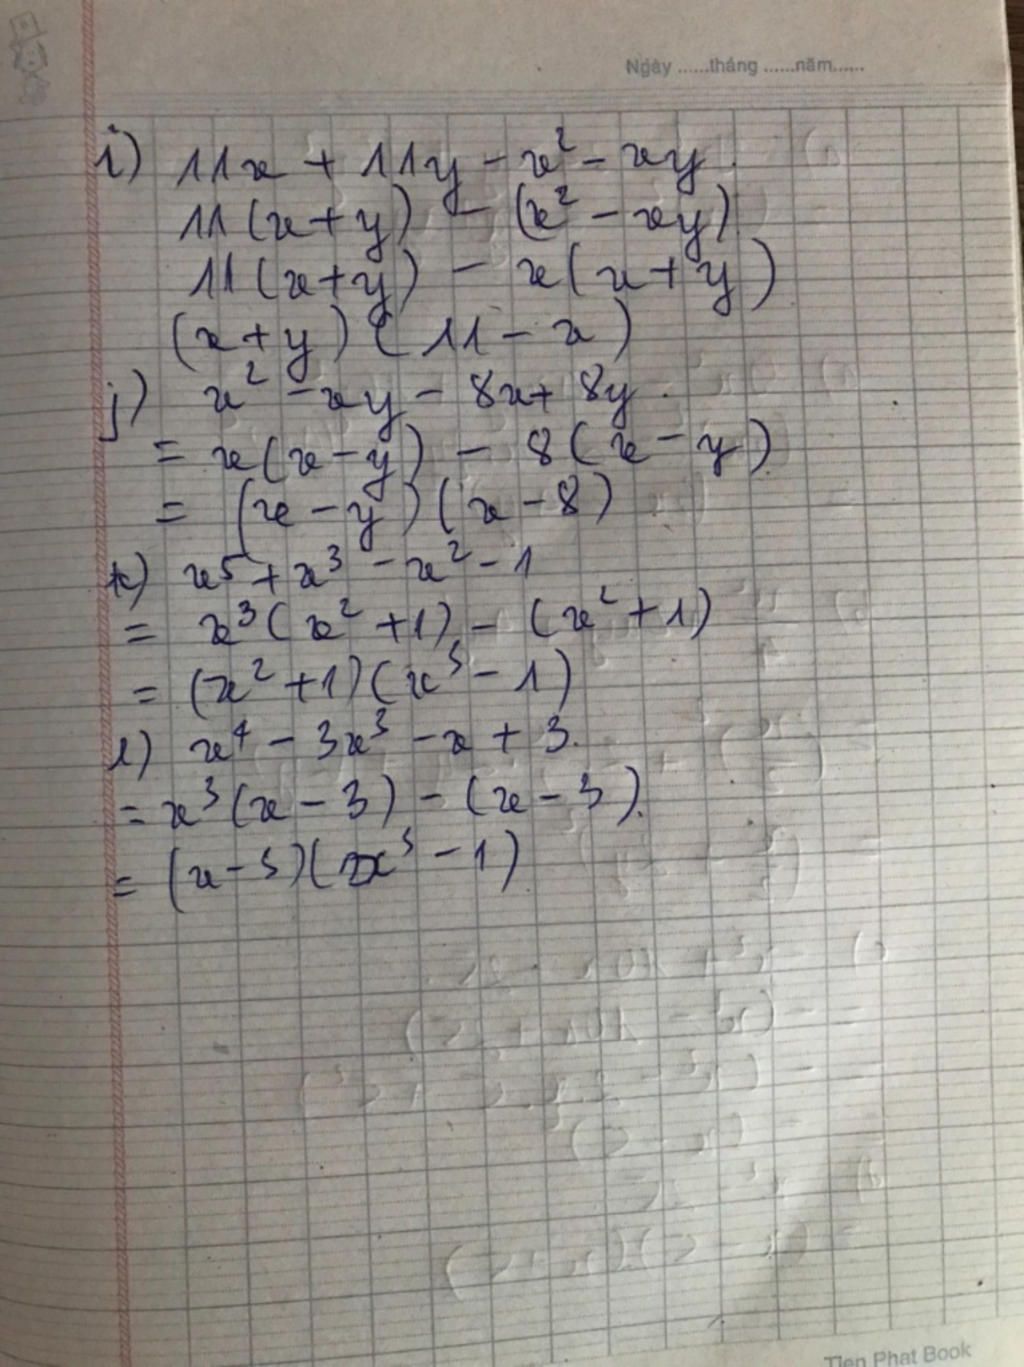 Ngày ......tháng ......năm......
i) 11x + 11y - x² - xy.
11(x+y) - (x² - xy)
11(x+y) - x(x+y)
(x+y)(11-x)
j) x² - xy - 8x + 8y.
= x(x-y) - 8(x-y)
= (x-y)(x-8)
k) x⁵ + x³ - x² - 1
= x³(x²+1) - (x²+1)
= (x²+1)(x³-1)
l) x⁴ - 3x³ - x + 3.
= x³(x-3) - (x-3).
= (x-3)(x³-1)
Tien Phat Book